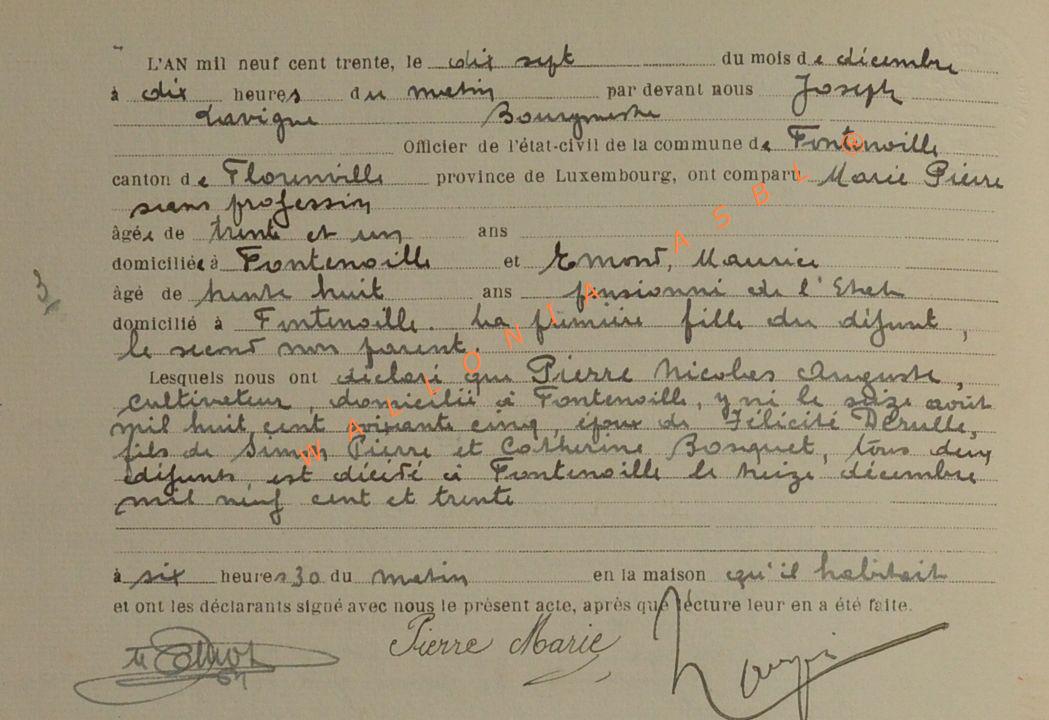 L'AN mil neuf cent trente, le dix sept du mois de décembre
à dix heures du matin par devant nous Joseph
Lavigne Bourgmestre
Officier de l'état-civil de la commune de Fontenoille
canton de Florenville province de Luxembourg, ont comparu Marie Pierre
sans profession
âgée de trente et un ans
domiciliée à Fontenoille et Emond, Maurice
âgé de trente huit ans pensionné de l'Etat
domicilié à Fontenoille. La première fille du défunt,
le second non parent.
3
Lesquels nous ont déclaré que Pierre Nicolas Auguste,
cultivateur, domicilié à Fontenoille, y né le seize août
mil huit cent soixante cinq, époux de Félicité Derulle,
fils de Simon Pierre et Catherine Bosquet, tous deux
défunts, est décédé à Fontenoille le seize décembre
mil neuf cent et trente
à six heures 30 du matin en la maison qu'il habitait
et ont les déclarants signé avec nous le présent acte, après que lecture leur en a été faite.
M Emond Pierre Marie Lavigne
WALLONIA ASBL ©